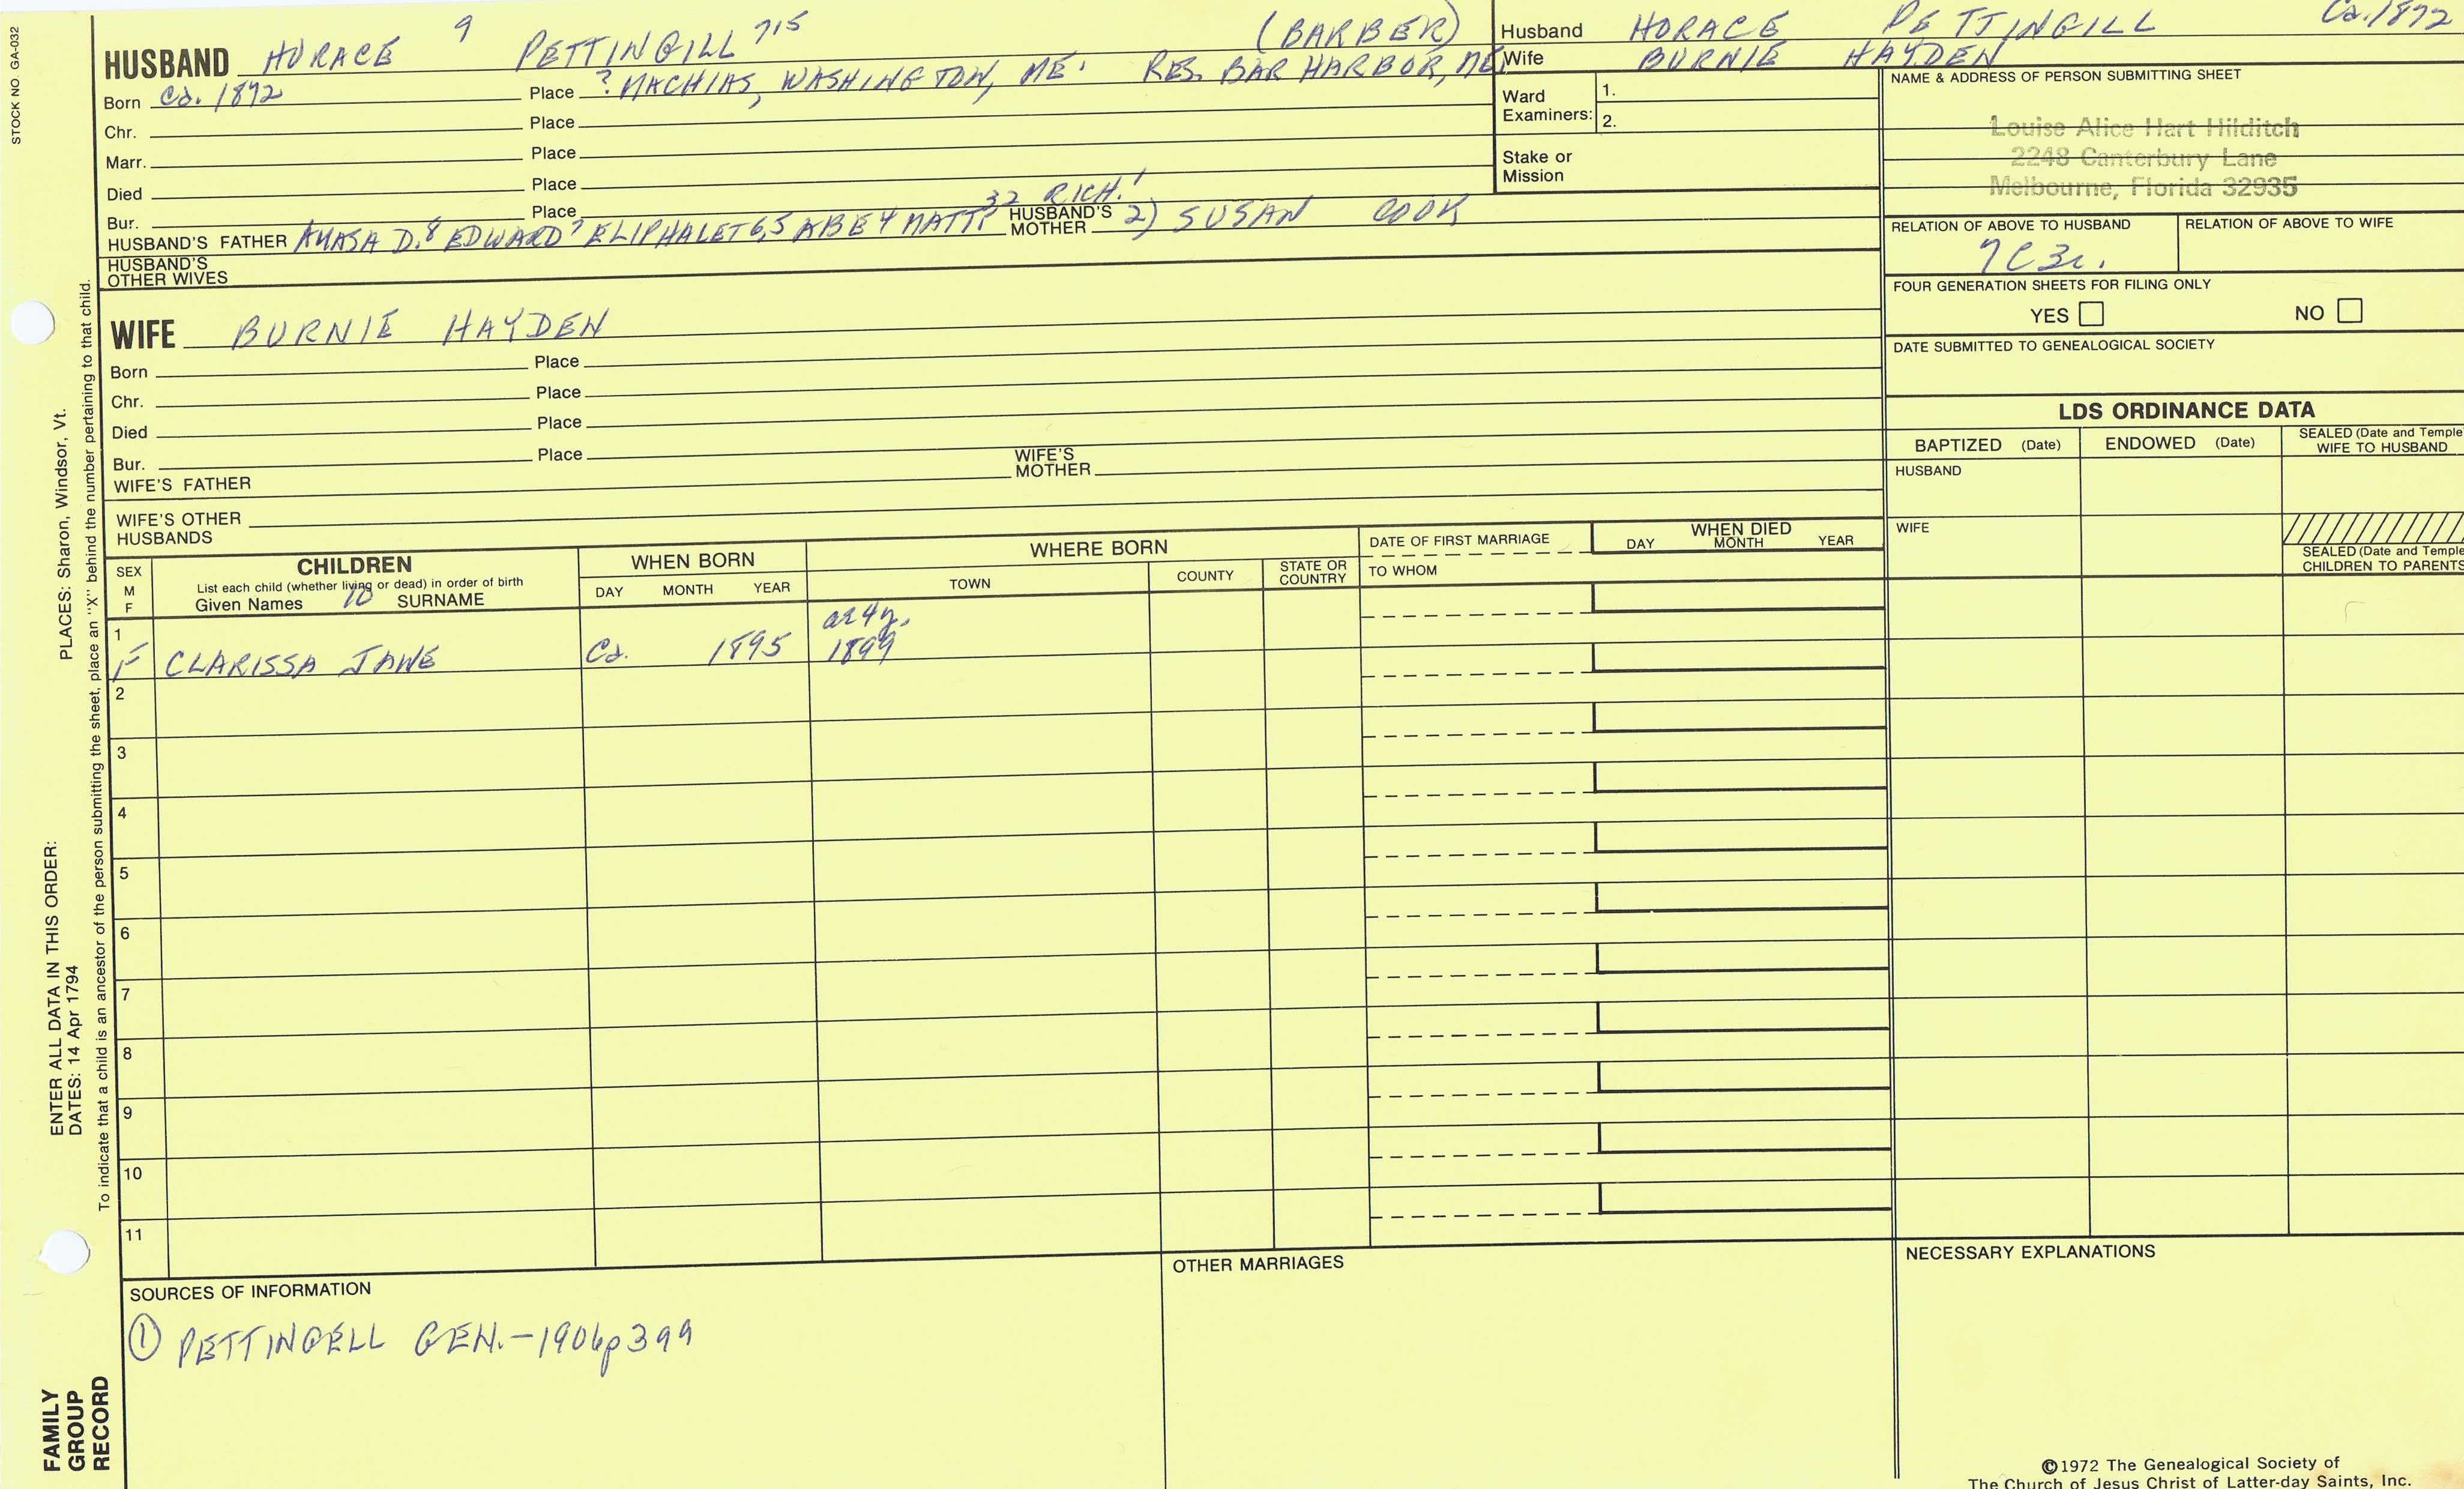 STOCK NO. GA-032
HUSBAND HORACE 9 PETTINGILL 715 (BARBER)
Born Ca. 1892 Place ? MACHIAS, WASHINGTON, ME. RES. BAR HARBOR, ME.
Chr. Place
Marr. Place
Died Place
Bur. Place
HUSBAND'S FATHER AMASA D.8 EDWARD7 ELIPHALET 6,5 ABE 4 MATT? 32 RICH.1 HUSBAND'S MOTHER 2) SUSAN COOK
HUSBAND'S OTHER WIVES
WIFE BURNIE HAYDEN
Born Place
Chr. Place
Died Place
Bur. Place
WIFE'S FATHER WIFE'S MOTHER
WIFE'S OTHER HUSBANDS
Husband HORACE PETTINGILL Ca. 1892
Wife BURNIE HAYDEN
Ward Examiners: 1.
2.
Stake or Mission
NAME & ADDRESS OF PERSON SUBMITTING SHEET
Louise Alice Hart Hilditch
2248 Canterbury Lane
Melbourne, Florida 32935
RELATION OF ABOVE TO HUSBAND RELATION OF ABOVE TO WIFE
7C3r.
FOUR GENERATION SHEETS FOR FILING ONLY
YES NO
DATE SUBMITTED TO GENEALOGICAL SOCIETY
LDS ORDINANCE DATA
BAPTIZED (Date) ENDOWED (Date) SEALED (Date and Temple
WIFE TO HUSBAND
HUSBAND
WIFE
SEALED (Date and Temple
CHILDREN TO PARENTS
SEX
M
F
CHILDREN
List each child (whether living or dead) in order of birth
Given Names 10 SURNAME
WHEN BORN
DAY MONTH YEAR
WHERE BORN
TOWN COUNTY STATE OR COUNTRY
DATE OF FIRST MARRIAGE
TO WHOM
WHEN DIED
DAY MONTH YEAR
1
F CLARISSA JANE Ca. 1895 ae 4y. 1899
2
3
4
5
6
7
8
9
10
11
SOURCES OF INFORMATION
① PETTINGELL GEN.-1906 p 399
OTHER MARRIAGES
NECESSARY EXPLANATIONS
©1972 The Genealogical Society of
The Church of Jesus Christ of Latter-day Saints, Inc.
ENTER ALL DATA IN THIS ORDER:
DATES: 14 Apr 1794
PLACES: Sharon, Windsor, Vt.
To indicate that a child is an ancestor of the person submitting the sheet, place an "X" behind the number pertaining to that child.
FAMILY
GROUP
RECORD